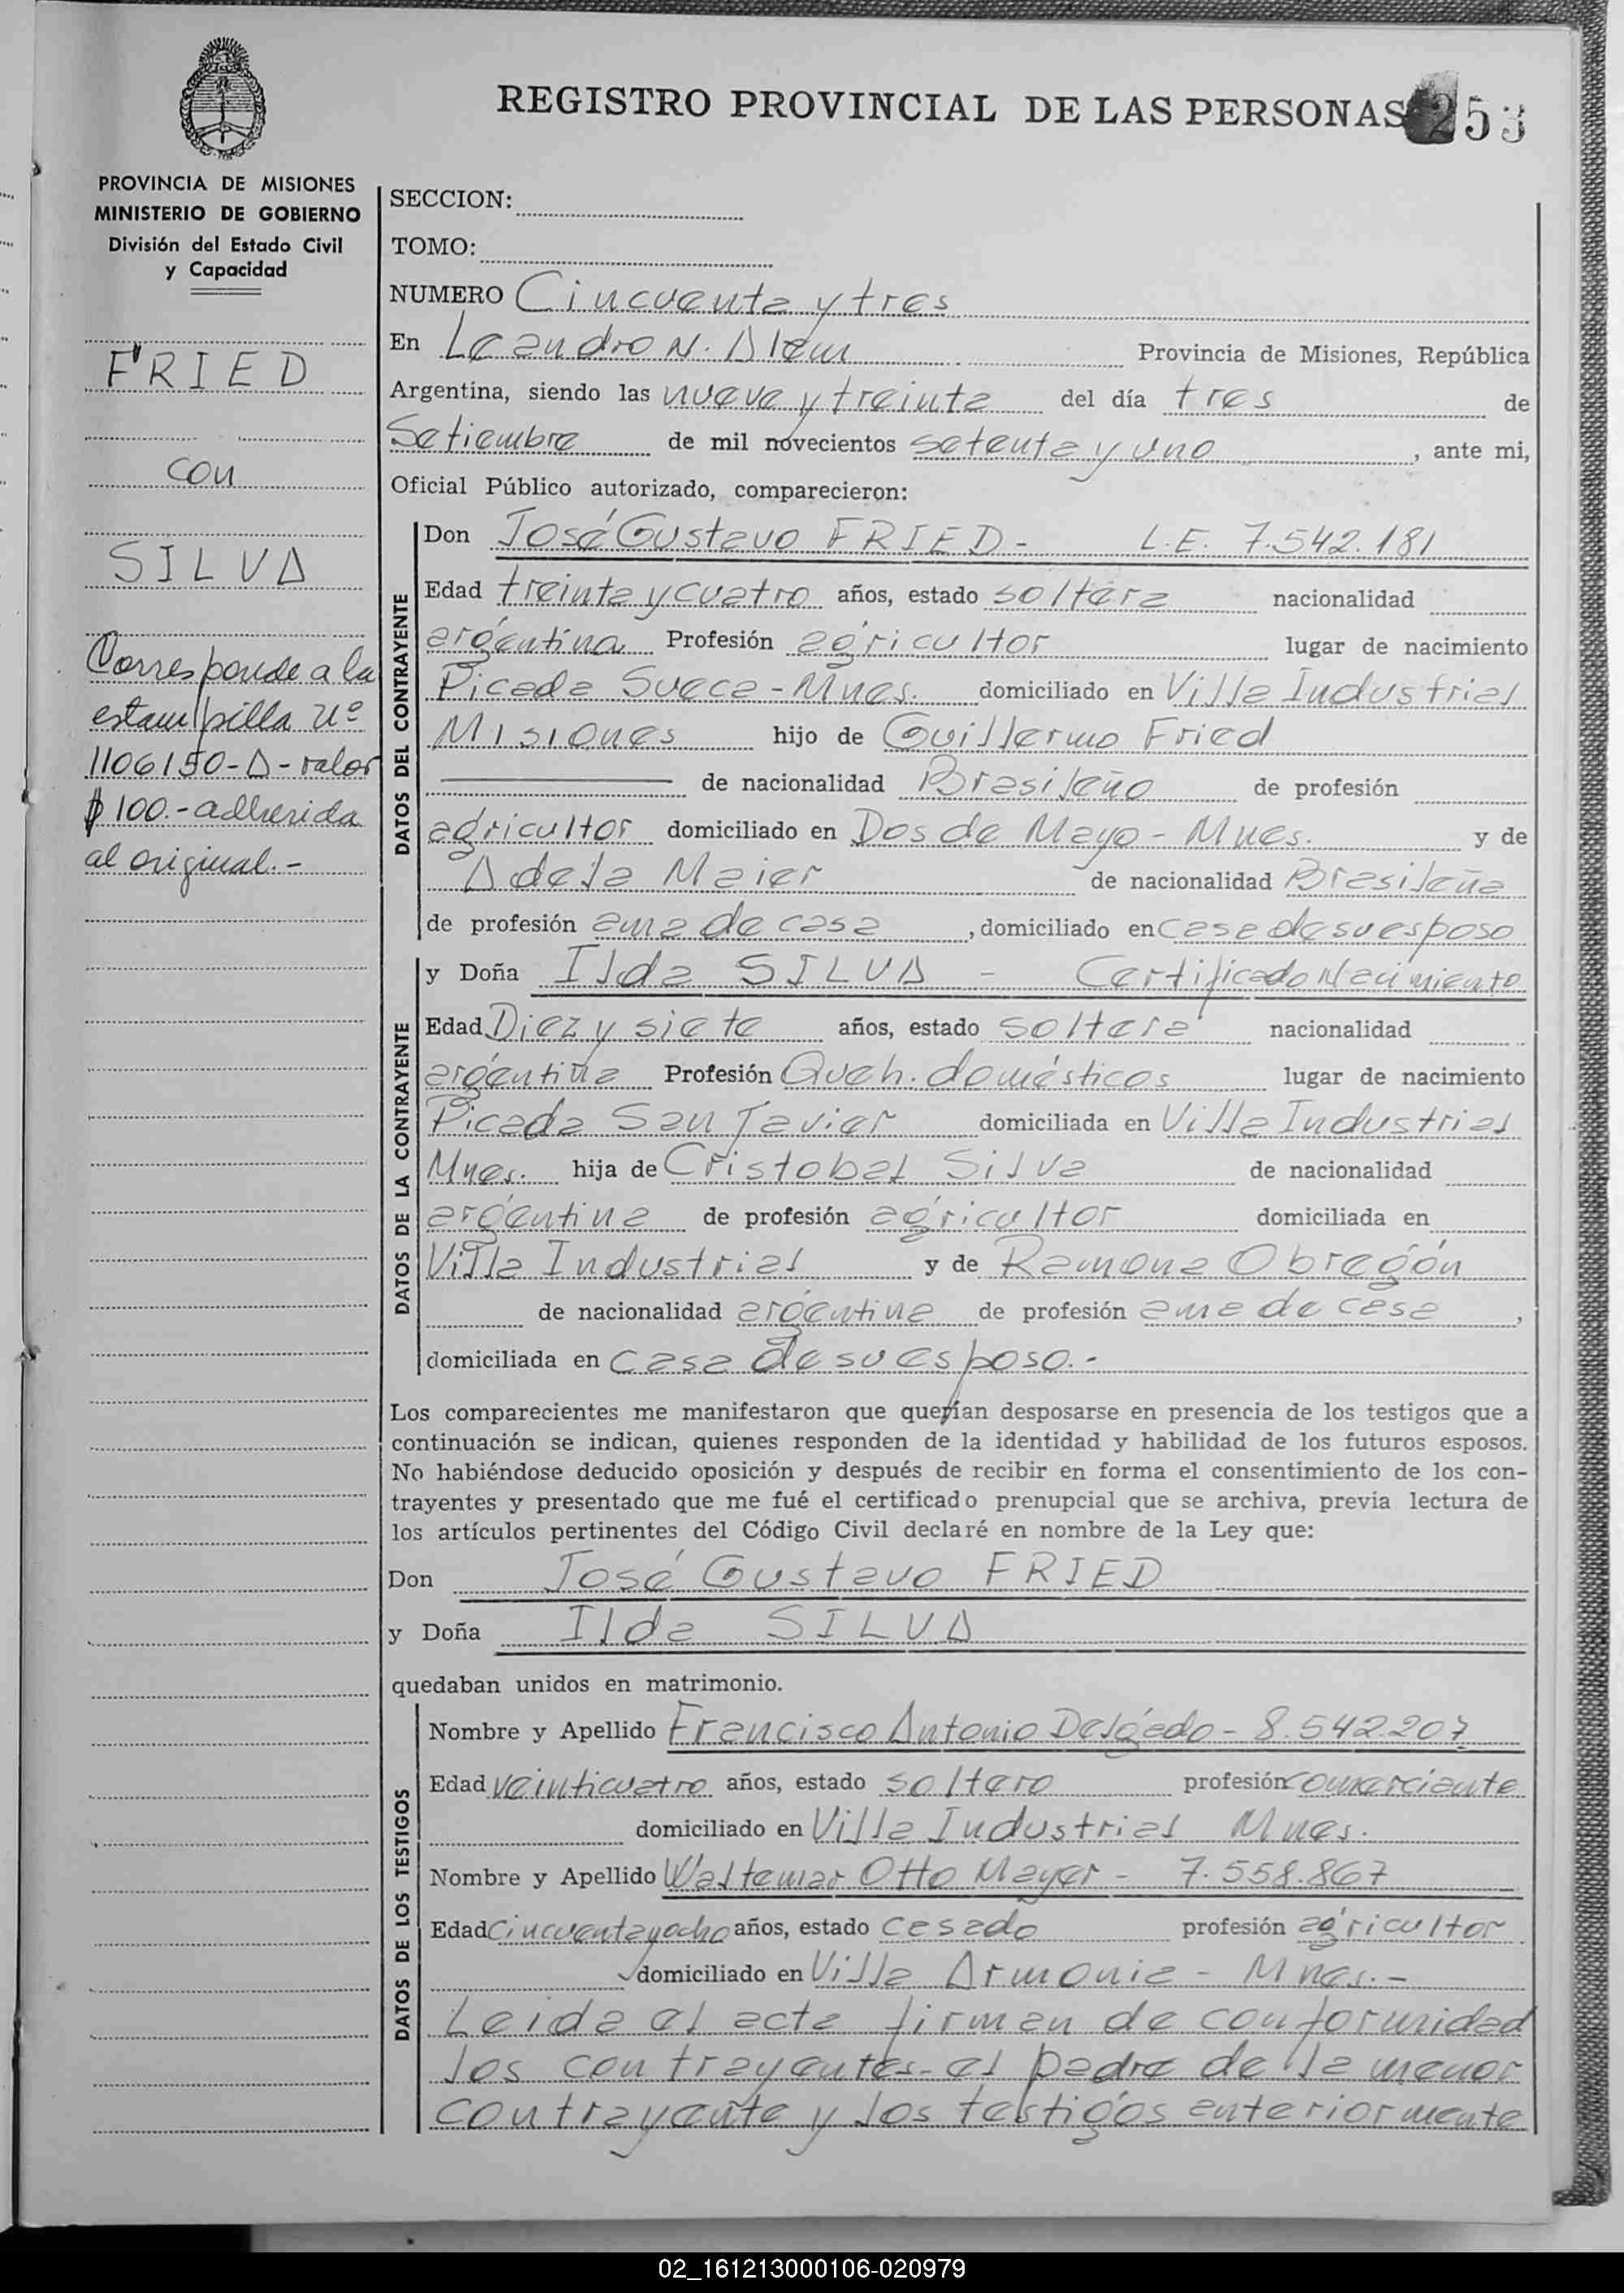 REGISTRO PROVINCIAL DE LAS PERSONAS 253
PROVINCIA DE MISIONES
MINISTERIO DE GOBIERNO
División del Estado Civil
y Capacidad
FRIED
con
SILVA
Corresponde a la
estampilla Nº
1106150-A-valor
$ 100.-adherida
al original.-
SECCION:
TOMO:
NUMERO Cincuenta y tres
En Leandro N. Alem Provincia de Misiones, República
Argentina, siendo las nueve y treinta del día tres de
Setiembre de mil novecientos setenta y uno, ante mi,
Oficial Público autorizado, comparecieron:
DATOS DEL CONTRAYENTE
Don José Gustavo FRIED - L.E. 7.542.181
Edad treinta y cuatro años, estado soltera nacionalidad
argentina Profesión agricultor lugar de nacimiento
Picada Sueca - Mnes. domiciliado en Villa Industrial
Misiones hijo de Guillermo Fried
de nacionalidad Brasileño de profesión
agricultor domiciliado en Dos de Mayo - Mnes. y de
Adela Maier de nacionalidad Brasileña
de profesión ama de casa, domiciliado en casa de su esposo
DATOS DE LA CONTRAYENTE
y Doña Ilda SILVA - Certificado Nacimiento
Edad Diez y siete años, estado soltera nacionalidad
argentina Profesión Queh. domésticos lugar de nacimiento
Picada San Javier domiciliada en Villa Industrial
Mnes. hija de Cristobal Silva de nacionalidad
argentina de profesión agricultor domiciliada en
Villa Industrial y de Ramona Obregón
de nacionalidad argentina de profesión ama de casa,
domiciliada en casa de su esposo.-
Los comparecientes me manifestaron que querían desposarse en presencia de los testigos que a
continuación se indican, quienes responden de la identidad y habilidad de los futuros esposos.
No habiéndose deducido oposición y después de recibir en forma el consentimiento de los con-
trayentes y presentado que me fué el certificado prenupcial que se archiva, previa lectura de
los artículos pertinentes del Código Civil declaré en nombre de la Ley que:
Don José Gustavo FRIED
y Doña Ilda SILVA
quedaban unidos en matrimonio.
DATOS DE LOS TESTIGOS
Nombre y Apellido Francisco Antonio Delgado - 8.542.207
Edad veinticuatro años, estado soltero profesión comerciante
domiciliado en Villa Industrial Mnes.
Nombre y Apellido Waltemar Otto Mayer - 7.558.867
Edad cincuenta y ocho años, estado casado profesión agricultor
domiciliado en Villa Armonia - Mnes.-
Leida el acta firman de conformidad
los contrayentes - el padre de la menor
contrayente y los testigos anteriormente
02_161213000106-020979